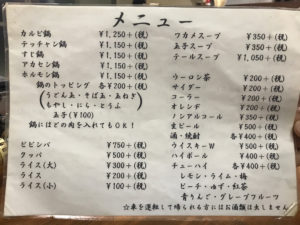 メニュー
カルビ鍋 ¥1,250+(税)
テッチャン鍋 ¥1,150+(税)
すじ鍋 ¥1,150+(税)
アカセン鍋 ¥1,150+(税)
ホルモン鍋 ¥1,150+(税)
鍋のトッピング 各¥200+(税)
(うどん玉・そば玉・玉ねぎ
もやし・にら・とうふ
玉子(¥100)
鍋にはどの肉を入れてもOK!
ビビンバ ¥750+(税)
クッパ ¥500+(税)
ライス(大) ¥300+(税)
ライス ¥200+(税)
ライス(小) ¥100+(税)
ワカメスープ ¥350+(税)
玉子スープ ¥350+(税)
テールスープ ¥1,050+(税)
ウーロン茶 ¥200+(税)
サイダー ¥200+(税)
コーラー ¥200+(税)
オレンヂ ¥200+(税)
ノンアルコール ¥350+(税)
生ビール ¥500+(税)
酒・焼酎 各¥400+(税)
ウイスキーW ¥500+(税)
ハイボール ¥400+(税)
チューハイ 各¥400+(税)
レモン・ライム・梅
ピーチ・ゆず・紅茶
青りんご・グレープフルーツ
☆車を運転して帰られる方にはお酒類は出しません